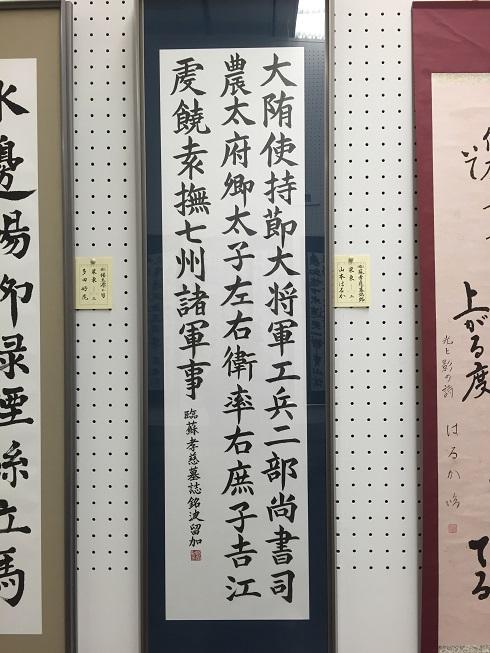 上がる度
光と影の詩
はるか
てる
山本はるか
大陏使持節大将軍工兵二部尚書司
農太府卿太子左右衛率右庶子吉江
虔饒袁撫七州諸軍事
臨蘇孝慈墓誌銘波留加
水邊楊柳緑煙絲立馬